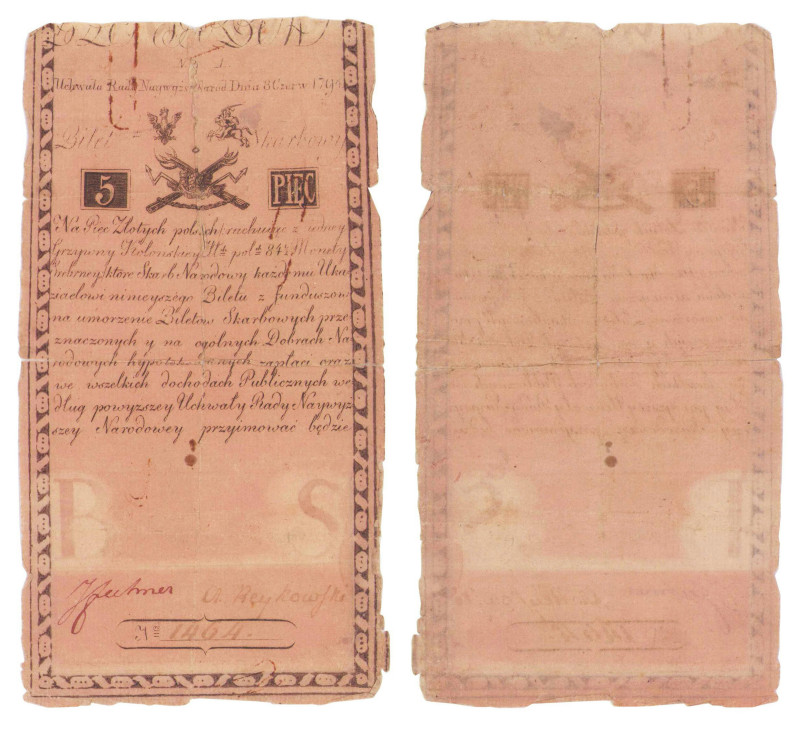 Uchwała Rady Naywyż: Narod Dnia 8 Czerw 179
Bilet Skarbowy
5 PIĘC
Na Pięc Złotych polsch: rachuiąc z iedney
Grzywny Kolońskiey Mt. pol: 84½ Monety
Srebrney, które Skarb Narodowy każdemu Uka
zicielowi ninieyszego Biletu z funduszow
na umorzenie Biletow Skarbowych prze
znaczonych y na ogolnych Dobrach Na
rodowych zapłaci oraz
we wszelkich dochodach Publicznych we
dług powyższey Uchwały Rady Naywyż
szey Narodowey przyimować będzie
A. Reykowski
No 1464.